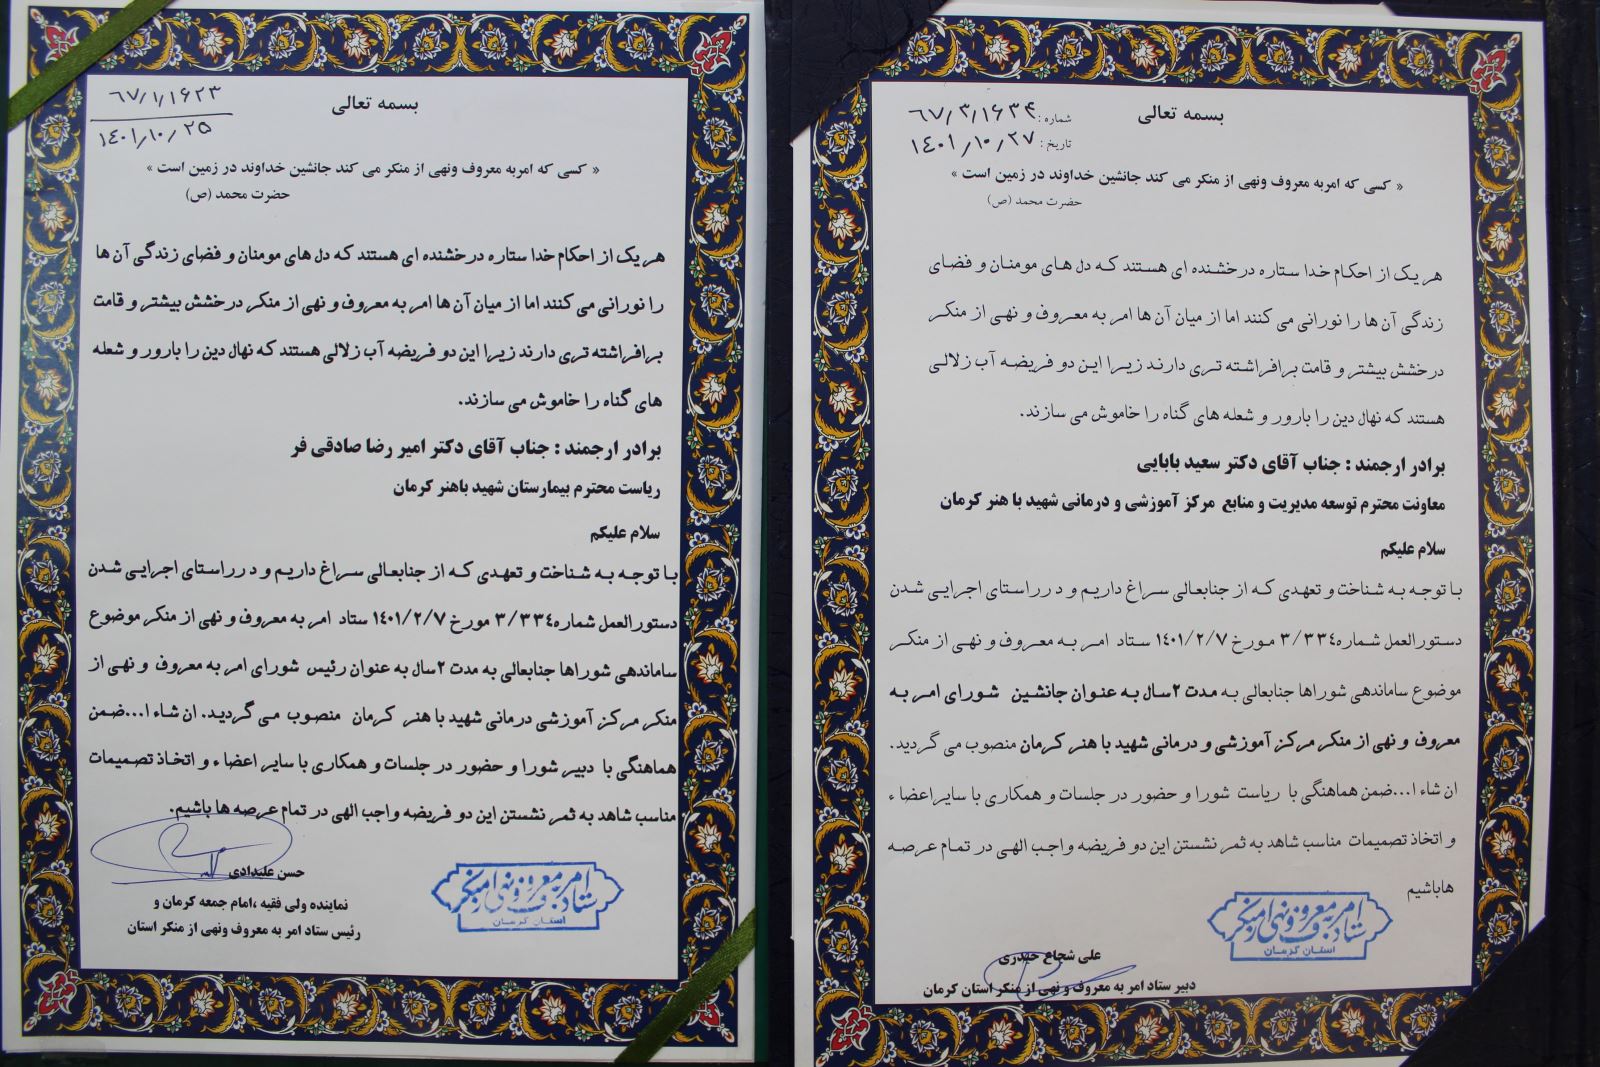 بسمه تعالی
۶۷/۱/۱۶۲۳
۱۴۰۱/۱۰/۲۵
« کسی که امربه معروف ونهی از منکر می کند جانشین خداوند در زمین است »
حضرت محمد (ص)
هر یک از احکام خدا ستاره درخشنده ای هستند که دل های مومنان و فضای زندگی آن ها
را نورانی می کنند اما از میان آن ها امر به معروف و نهی از منکر درخشش بیشتر و قامت
برافراشته تری دارند زیرا این دو فریضه آب زلالی هستند که نهال دین را بارور و شعله
های گناه را خاموش می سازند.
برادر ارجمند : جناب آقای دکتر امیر رضا صادقی فر
ریاست محترم بیمارستان شهید باهنر کرمان
سلام علیکم
با توجه به شناخت و تعهدی که از جنابعالی سراغ داریم و در راستای اجرایی شدن
دستورالعمل شماره ۳/۳۳۴ مورخ ۱۴۰۱/۲/۷ ستاد امر به معروف و نهی از منکر موضوع
ساماندهی شوراها جنابعالی به مدت ۲ سال به عنوان رئیس شورای امر به معروف و نهی از
منکر مرکز آموزشی درمانی شهید با هنر کرمان منصوب می گردید. ان شاء ا...ضمن
هماهنگی با دبیر شورا و حضور در جلسات و همکاری با سایر اعضاء و اتخاذ تصمیمات
مناسب شاهد به ثمر نشستن این دو فریضه واجب الهی در تمام عرصه ها باشیم.
حسن علیدادی
نماینده ولی فقیه ،امام جمعه کرمان و
رئیس ستاد امر به معروف ونهی از منکر استان
ستاد امر به معروف و نهی از منکر
استان کرمان
بسمه تعالی
شماره : ۶۷/۳/۱۶۳۴
تاریخ : ۱۴۰۱/۱۰/۲۷
« کسی که امربه معروف ونهی از منکر می کند جانشین خداوند در زمین است »
حضرت محمد (ص)
هر یک از احکام خدا ستاره درخشنده ای هستند که دل های مومنان و فضای
زندگی آن ها را نورانی می کنند اما از میان آن ها امر به معروف و نهی از منکر
درخشش بیشتر و قامت برافراشته تری دارند زیرا این دو فریضه آب زلالی
هستند که نهال دین را بارور و شعله های گناه را خاموش می سازند.
برادر ارجمند : جناب آقای دکتر سعید بابایی
معاونت محترم توسعه مدیریت و منابع مرکز آموزشی و درمانی شهید با هنر کرمان
سلام علیکم
با توجه به شناخت و تعهدی که از جنابعالی سراغ داریم و در راستای اجرایی شدن
دستورالعمل شماره ۳/۳۳۴ مورخ ۱۴۰۱/۲/۷ ستاد امر به معروف و نهی از منکر
موضوع ساماندهی شوراها جنابعالی به مدت ۲ سال به عنوان جانشین شورای امر به
معروف و نهی از منکر مرکز آموزشی و درمانی شهید با هنر کرمان منصوب می گردید.
ان شاء ا...ضمن هماهنگی با ریاست شورا و حضور در جلسات و همکاری با سایر اعضاء
و اتخاذ تصمیمات مناسب شاهد به ثمر نشستن این دو فریضه واجب الهی در تمام عرصه
هاباشیم
علی شجاع حیدری
دبیر ستاد امر به معروف و نهی از منکر استان کرمان
ستاد امر به معروف و نهی از منکر
استان کرمان